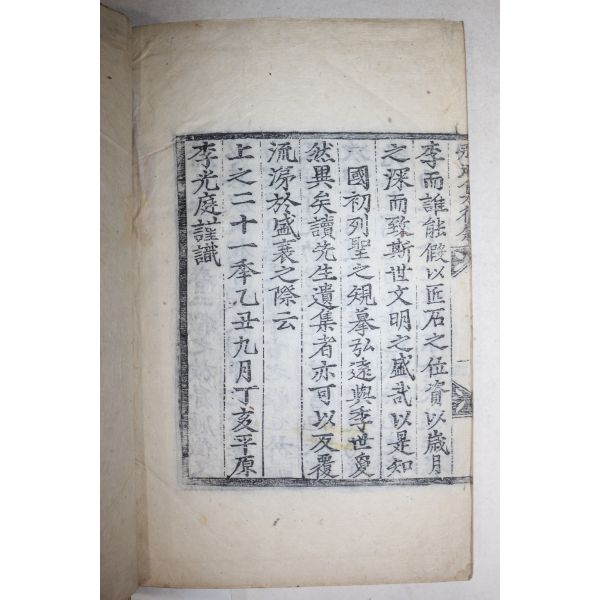 季而誰能假以匠石之位資以歲月
之深而致斯世文明之盛哉以是知
國初列聖之規摹弘遠與季世夐
然異矣讀先生遺集者亦可以反覆
流涕於盛衰之際云
上之二十一年乙丑九月丁亥平原
李光庭謹識